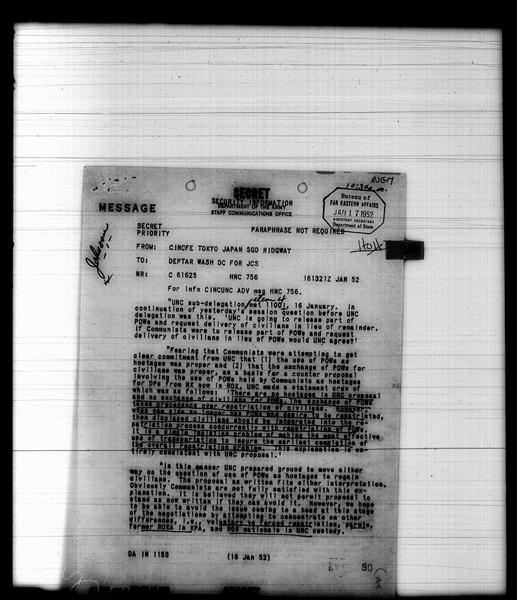 RJGM
10:30 a.m.
SECRET
SECURITY INFORMATION
DEPARTMENT OF THE ARMY
STAFF COMMUNICATIONS OFFICE
MESSAGE
Bureau of
FAR EASTERN AFFAIRS
JAN 17 1952
ASSISTANT SECRETARY
Department of State
SECRET
PRIORITY
PARAPHRASE NOT REQUIRED
FROM: CINCFE TOKYO JAPAN SGD RIDGWAY
TO: DEPTAR WASH DC FOR JCS
NR: C 61625 HNC 756 161321Z JAN 52
For info CINCUNC ADV msg HNC 756.
item 4
"UNC sub-delegation met 1100I, 16 January. In
continuation of yesterday's session question before UNC
delegation was this, 'UNC is going to release part of
POWs and request delivery of civilians in lieu of remainder.
If Communists were to release part of POWs and request
delivery of civilians in lieu of POWs would UNC agree?'
"Fearing that Communists were attempting to get
clear commitment from UNC that (1) the use of POWs as
hostages was proper and (2) that the exchange of POWs for
civilians was proper, as a basis for a counter proposal
involving the use of POWs held by Communists as hostages
for DPs from NK now in ROK, UNC made a statement crux of
which was as follows: There are no hostages in UNC proposal
and no exchange of civilians for POWs. The exchange of POWs
takes precedence over repatriation of civilians.
it is a simple
use of transportation to insure the earliest completion of
the overall repatriation problem. This explanation is en-
tirely consistent with UNC proposal.'
"In this manner UNC prepared ground to move either
way on the question of use of POWs as hostages to regain
civilians. The proposal as written fits either interpretation.
Obviously Communists are not fully satisfied with this ex-
planation. It is believed they will not permit proposal to
stand as now written if they can avoid it. However, we hope
to be able to avoid the issue coming to a head at this stage
of the negotiations by attempting to concentrate on other
differences, i.e., voluntary vs forced repatriation, parole,
former ROKA in KPA, and ROK nationals in UNC custody.
DA IN 1155 (16 Jan 52)
90